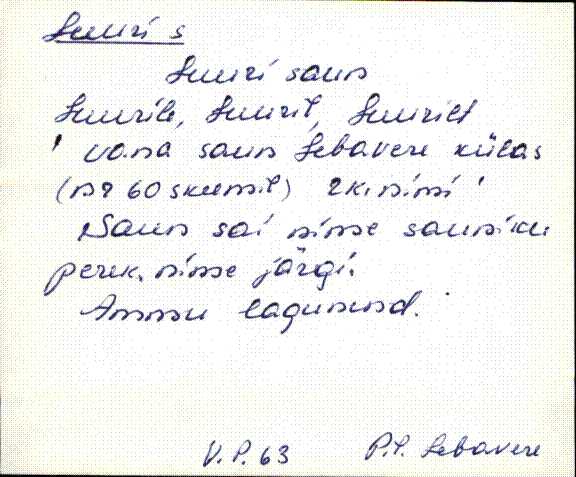 Suuri s
Suuri saun
Suurile, Suuril, Suurilt
' vana saun Lebavere külas
(nr 60 skeemil) rk. nimi '
Saun sai nime sauniku
perek. nime järgi.
Ammu lagunend.
V. P. 63 P.P. Lebavere